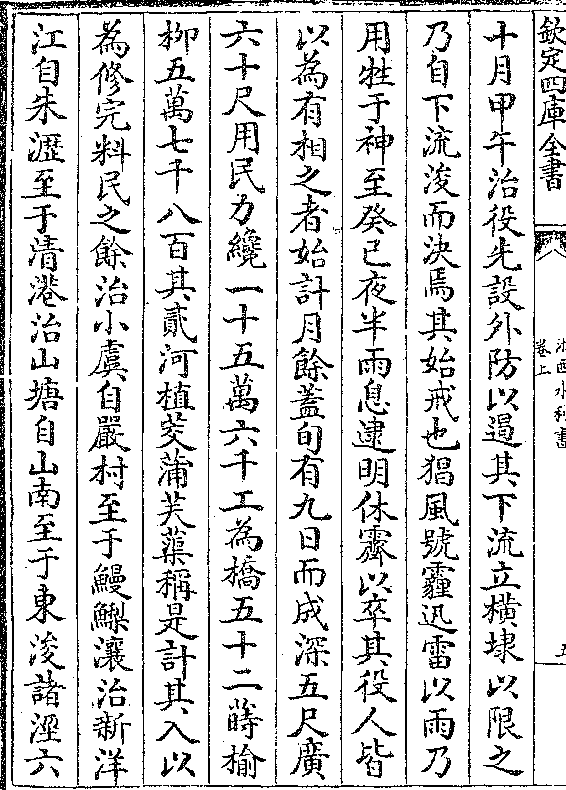 欽定四庫全書
浙西水利書
卷上
五
十月甲午治役先設外防以遏其下流立橫埭以限之
乃自下流浚而決焉其始戒也猖風號霾迅雷以雨乃
用牲于神至癸巳夜半雨息逮明休霽以卒其役人皆
以為有相之者始計月餘蓋旬有九日而成深五尺廣
六十尺用民力纔一十五萬六千工為橋五十二蒔榆
柳五萬七千八百其貳河植茭蒲芙蕖稱是計其入以
為修完料民之餘治小虞自嚴村至于鰻鱺瀼治新洋
江自朱瀝至于清港治山塘自山南至于東浚諸涇六